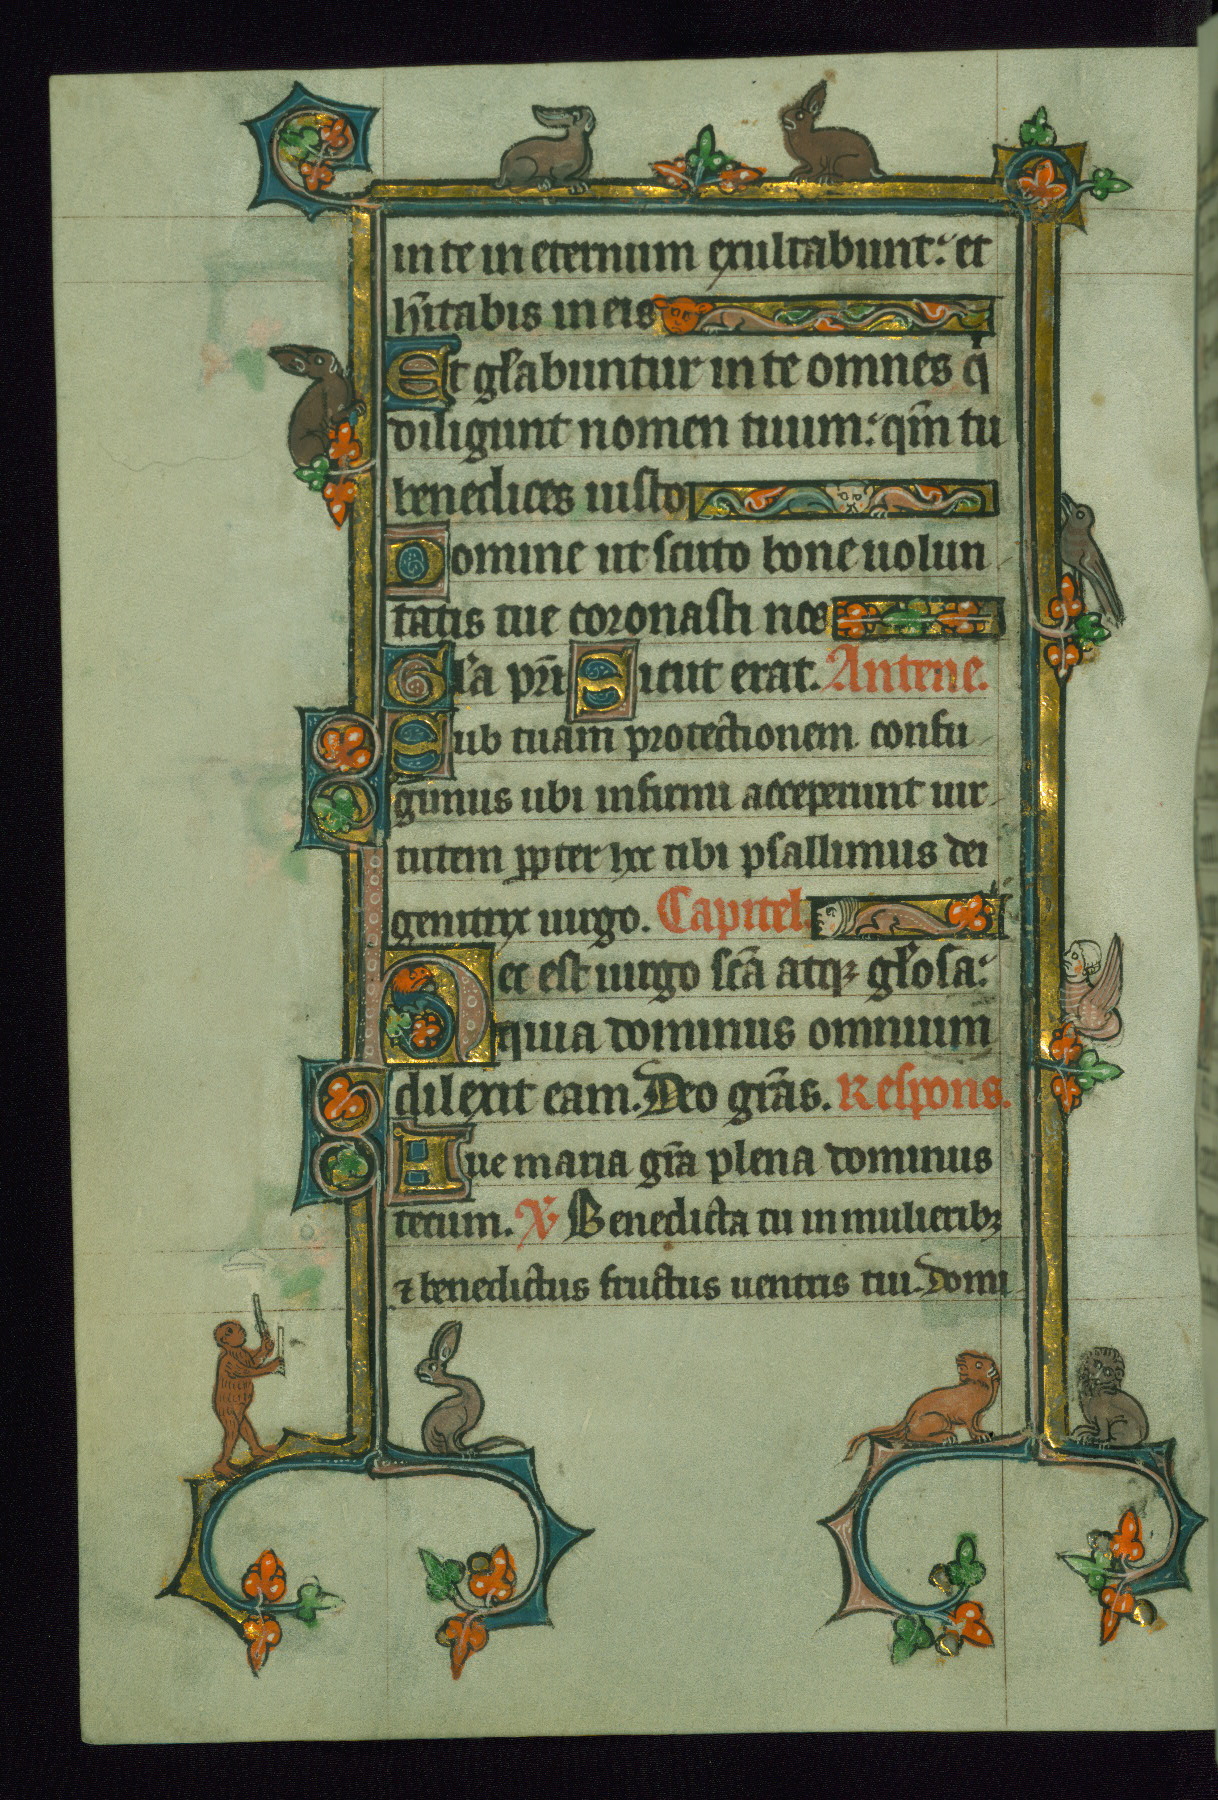 in te in eternum exultabunt: et
hītabis in eis
Et gl'abuntur in te omnes q'
diligunt nomen tuum: qm̄ tu
benedices iusto
Domine ut scuto bone uolun
tatis tue coronasti nos
Gl'a pr̄i Sicut erat. Antene.
Sub tuam protectionem confu
gimus ubi infirmi acceperunt uir
tutem ꝓpter hec tibi psallimus dei
genitrix uirgo. Capitel.
Hec est uirgo sc̄a atqꝫ gl'osa:
quia dominus omnium
dilexit eam. Deo gr̄as. Respons.
Aue maria gr̄a plena dominus
tecum. V Benedicta tu in mulieribꝫ
⁊ benedictus fructus uentris tui. Domi